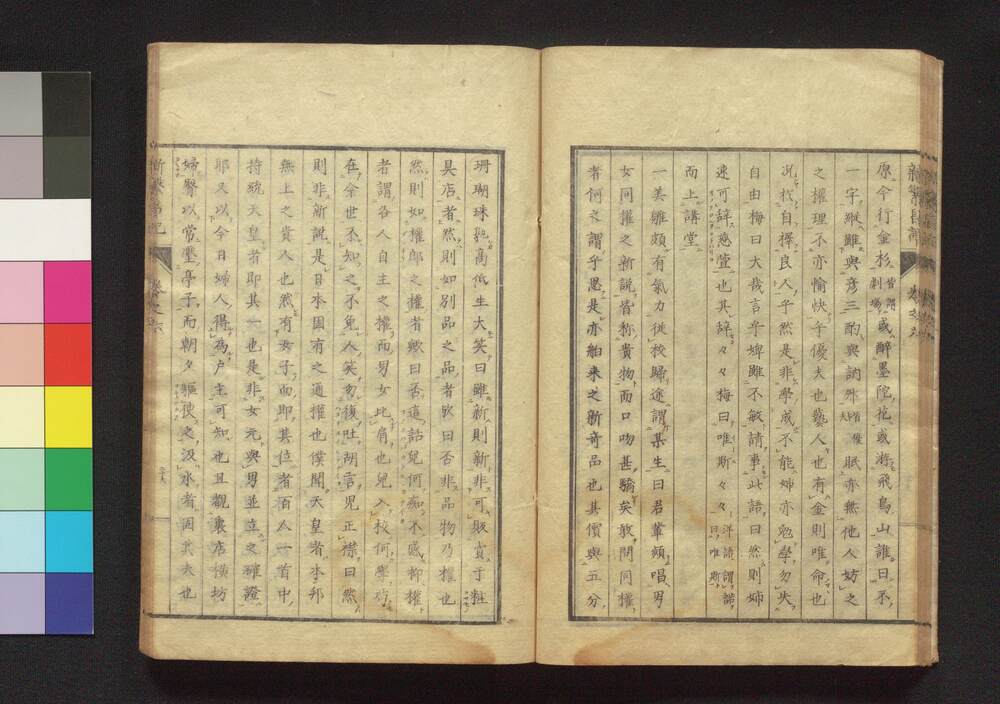 原今行金杉皆謂劇場或醉墨陀花或游飛鳥山誰曰不
一字縱雖與彦三酌與訥舛皆優夫眠亦無他人妨之
之權理不亦愉快乎優夫也藝人也有金則唯命也
況於自擇良人乎然是非學成不能姉亦勉學勿失
自由梅曰大哉言乎婢雖不敏請事此語曰然則姉
速可辭忘萱也其辭々々梅曰唯斯々々洋語謂諾曰唯斯
而上講堂
一美雖頗有氣力從校歸途謂某生曰君輩頻唱男
女同權之新説皆称貴物而口吻甚驕矣敢問同權
者何之謂乎愚是亦舶來之新奇品也其價與五分
珊瑚珠孰高低生大笑曰雖新則新非可販賣于粧
具店者然則如別品之品者歟曰否非品物乃權也
然則如權郎之權者歟曰否這詰兒何痴不感抑權
者謂各人自主之權而男女比肩也兒入校何學
在今世不知之不免人笑勿復吐胡言兒正襟曰然
則非新説是日本固有之通權也僕聞天皇者本邦
無上之貴人也然有女子而即其位者百人一首中
持統天皇者即其一也是非女元與男並立之確證
耶又以今日婦人得為戸主可知也且觀裏店横坊
婦脣以常壓亭子而朝夕驅使之汲水者固其夫也